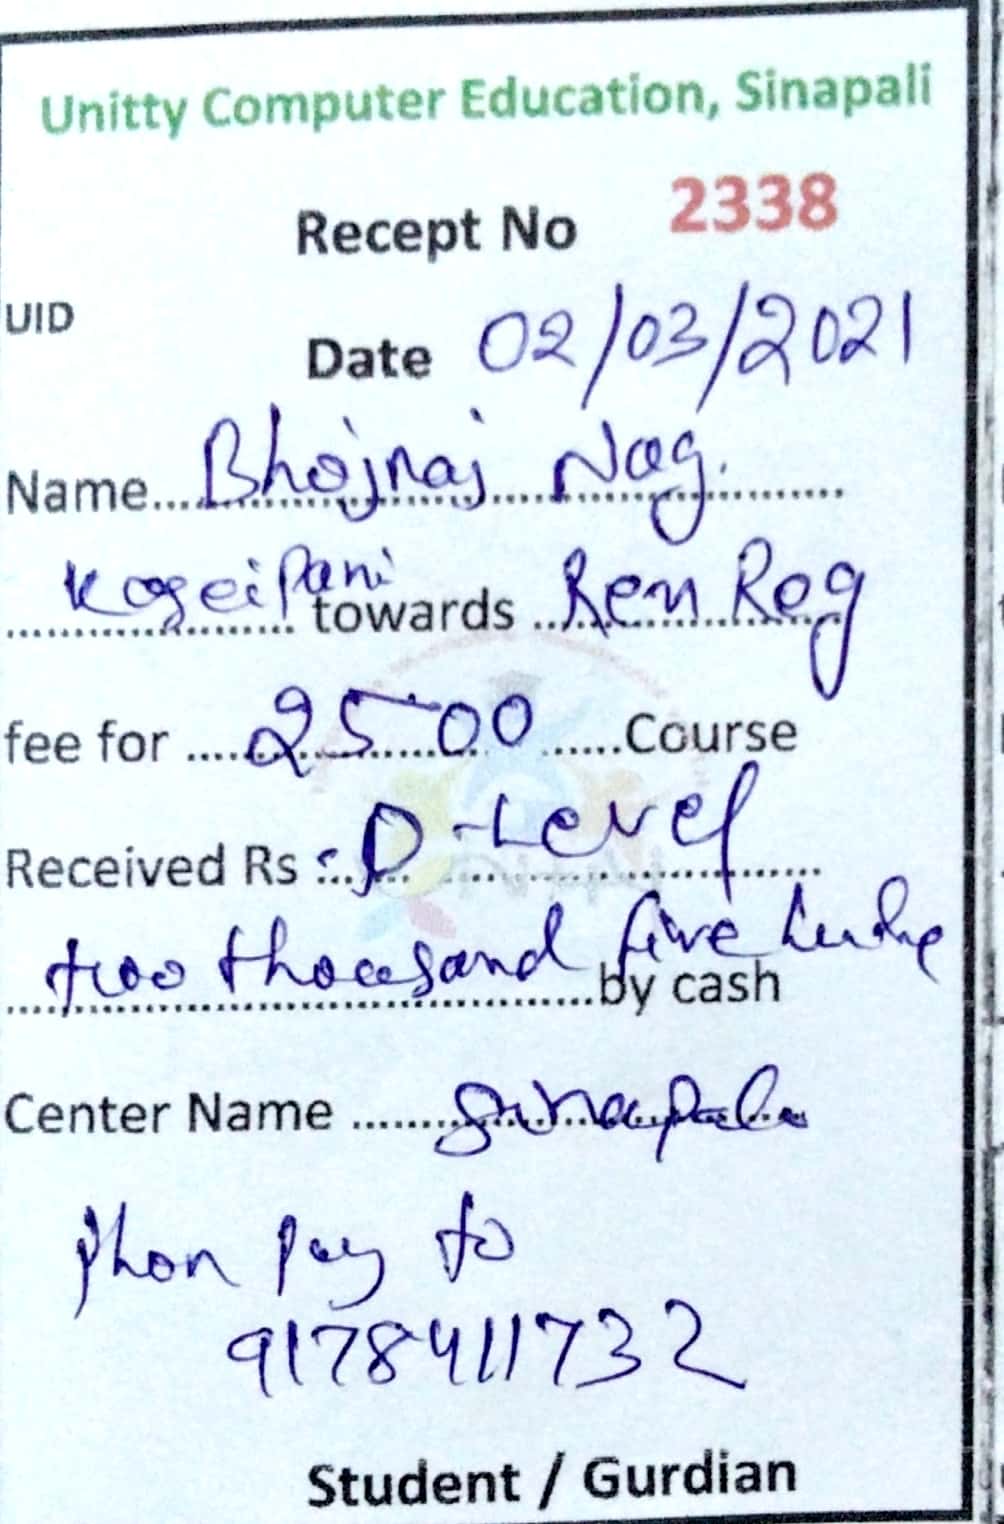 Unitty Computer Education, Sinapali
Recept No 2338
UID
Date 02/03/2021
Name... Bhojraj Nag.
towards .. Ren Reg
fee for ..... 2500 ......Course
Received Rs :.. D-Level
two thousand five by cash
Center Name ........ Sinapali
Phon Pay to
9178411732
Student / Gurdian